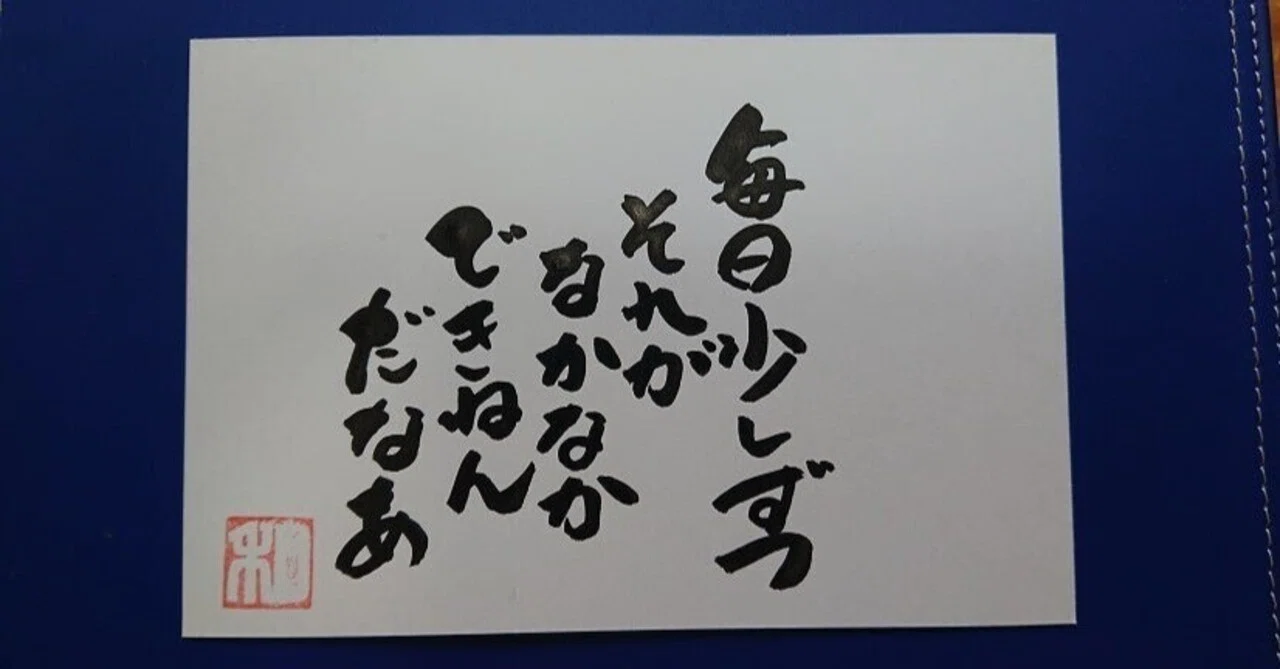 毎日少しずつ
それが
なかなか
できねん
だなあ